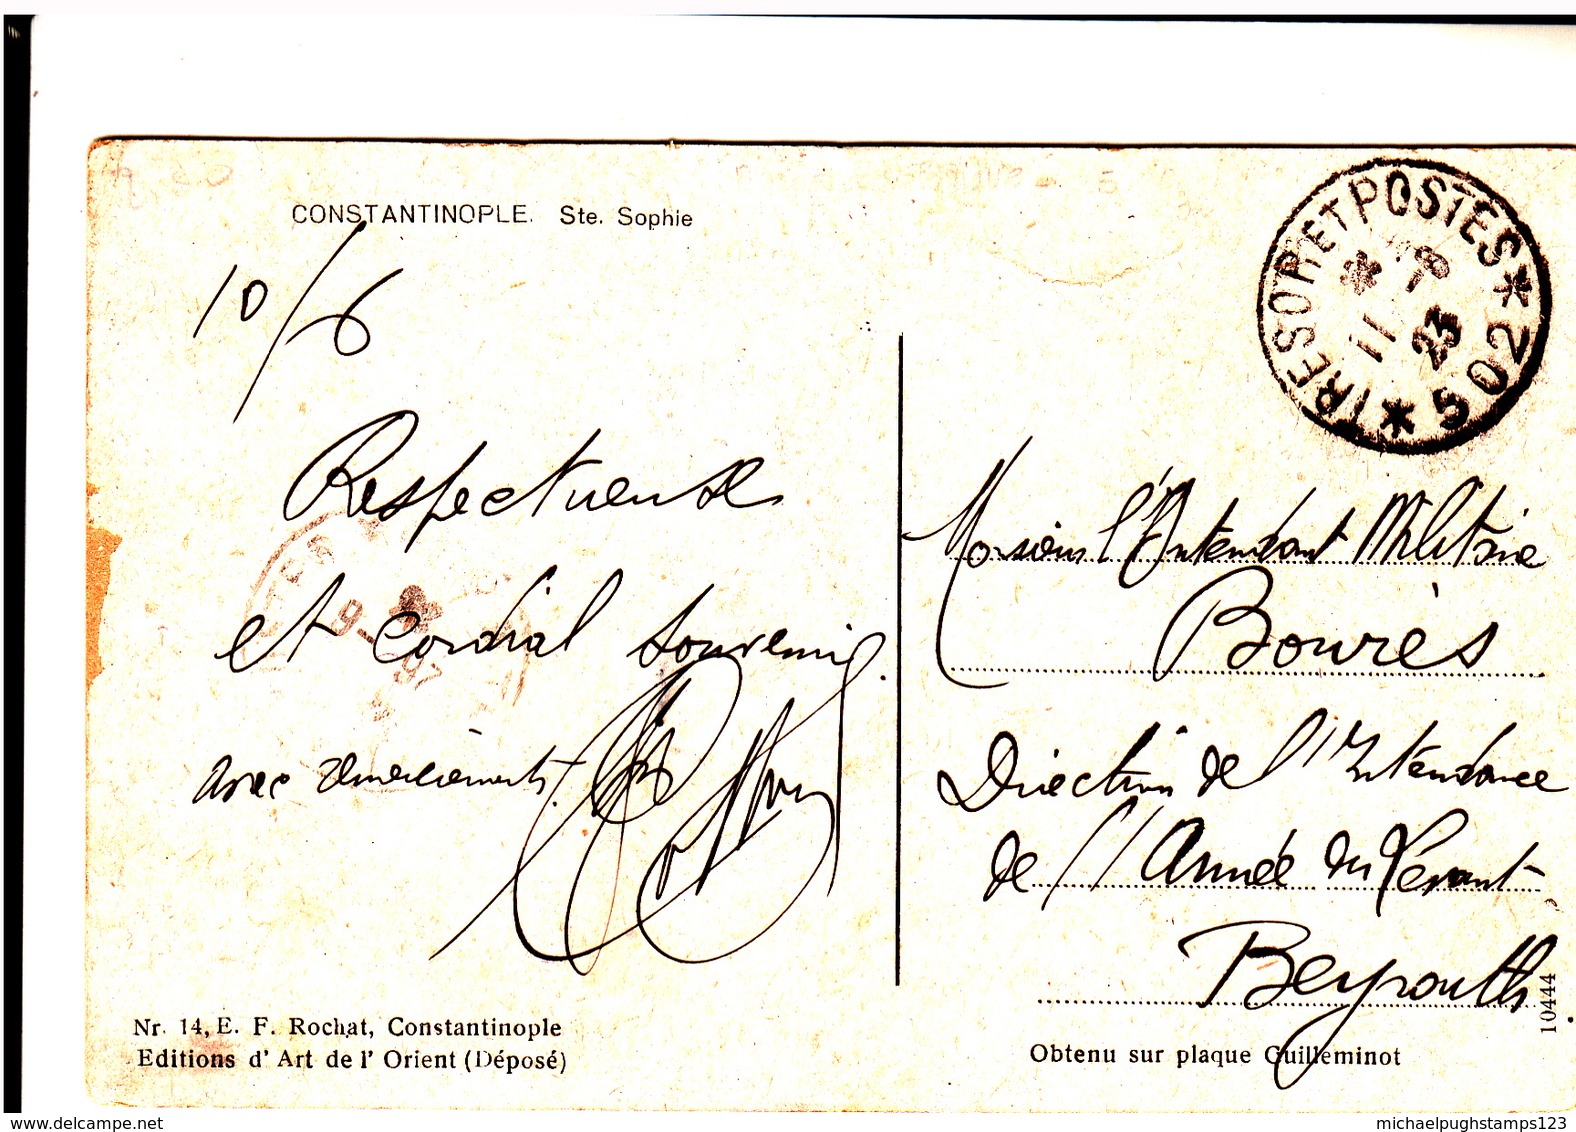 CONSTANTINOPLE. Ste. Sophie
10/6
Respectueuse
et cordial souvenir.
avec remerciements.
Nr. 14, E. F. Rochat, Constantinople
Editions d' Art de l' Orient (Déposé)
* TRESOR ET POSTES *
502
11
23
Monsieur l'Intendant Militaire
Bourès
Direction de l'Intendance
de l'Armée du Levant
Beyrouth.
10444
Obtenu sur plaque Guilleminot
delcampe.net
michaelpughstamps123